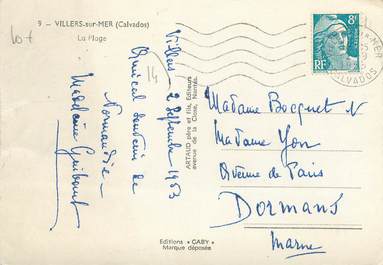 9 - VILLERS-sur-MER (Calvados)
La Plage
Villers - 2 Septembre 1953
Amical souvenir de
Normandie -
Madeleine Guibout
ARTAUD père et fils, Editeurs
avenue de la Close, Nantes
Editions "GABY"
Marque déposée
8F
RF
CALVADOS
Madame Bocquet N
Madame Yon
Avenue de Paris
DORMANS
Marne